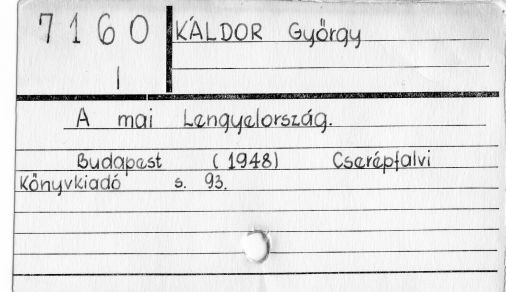 7160 KÁLDOR György
1
A mai Lengyelország.
Budapest (1948) Cserépfalvi
Könyvkiadó s. 93.